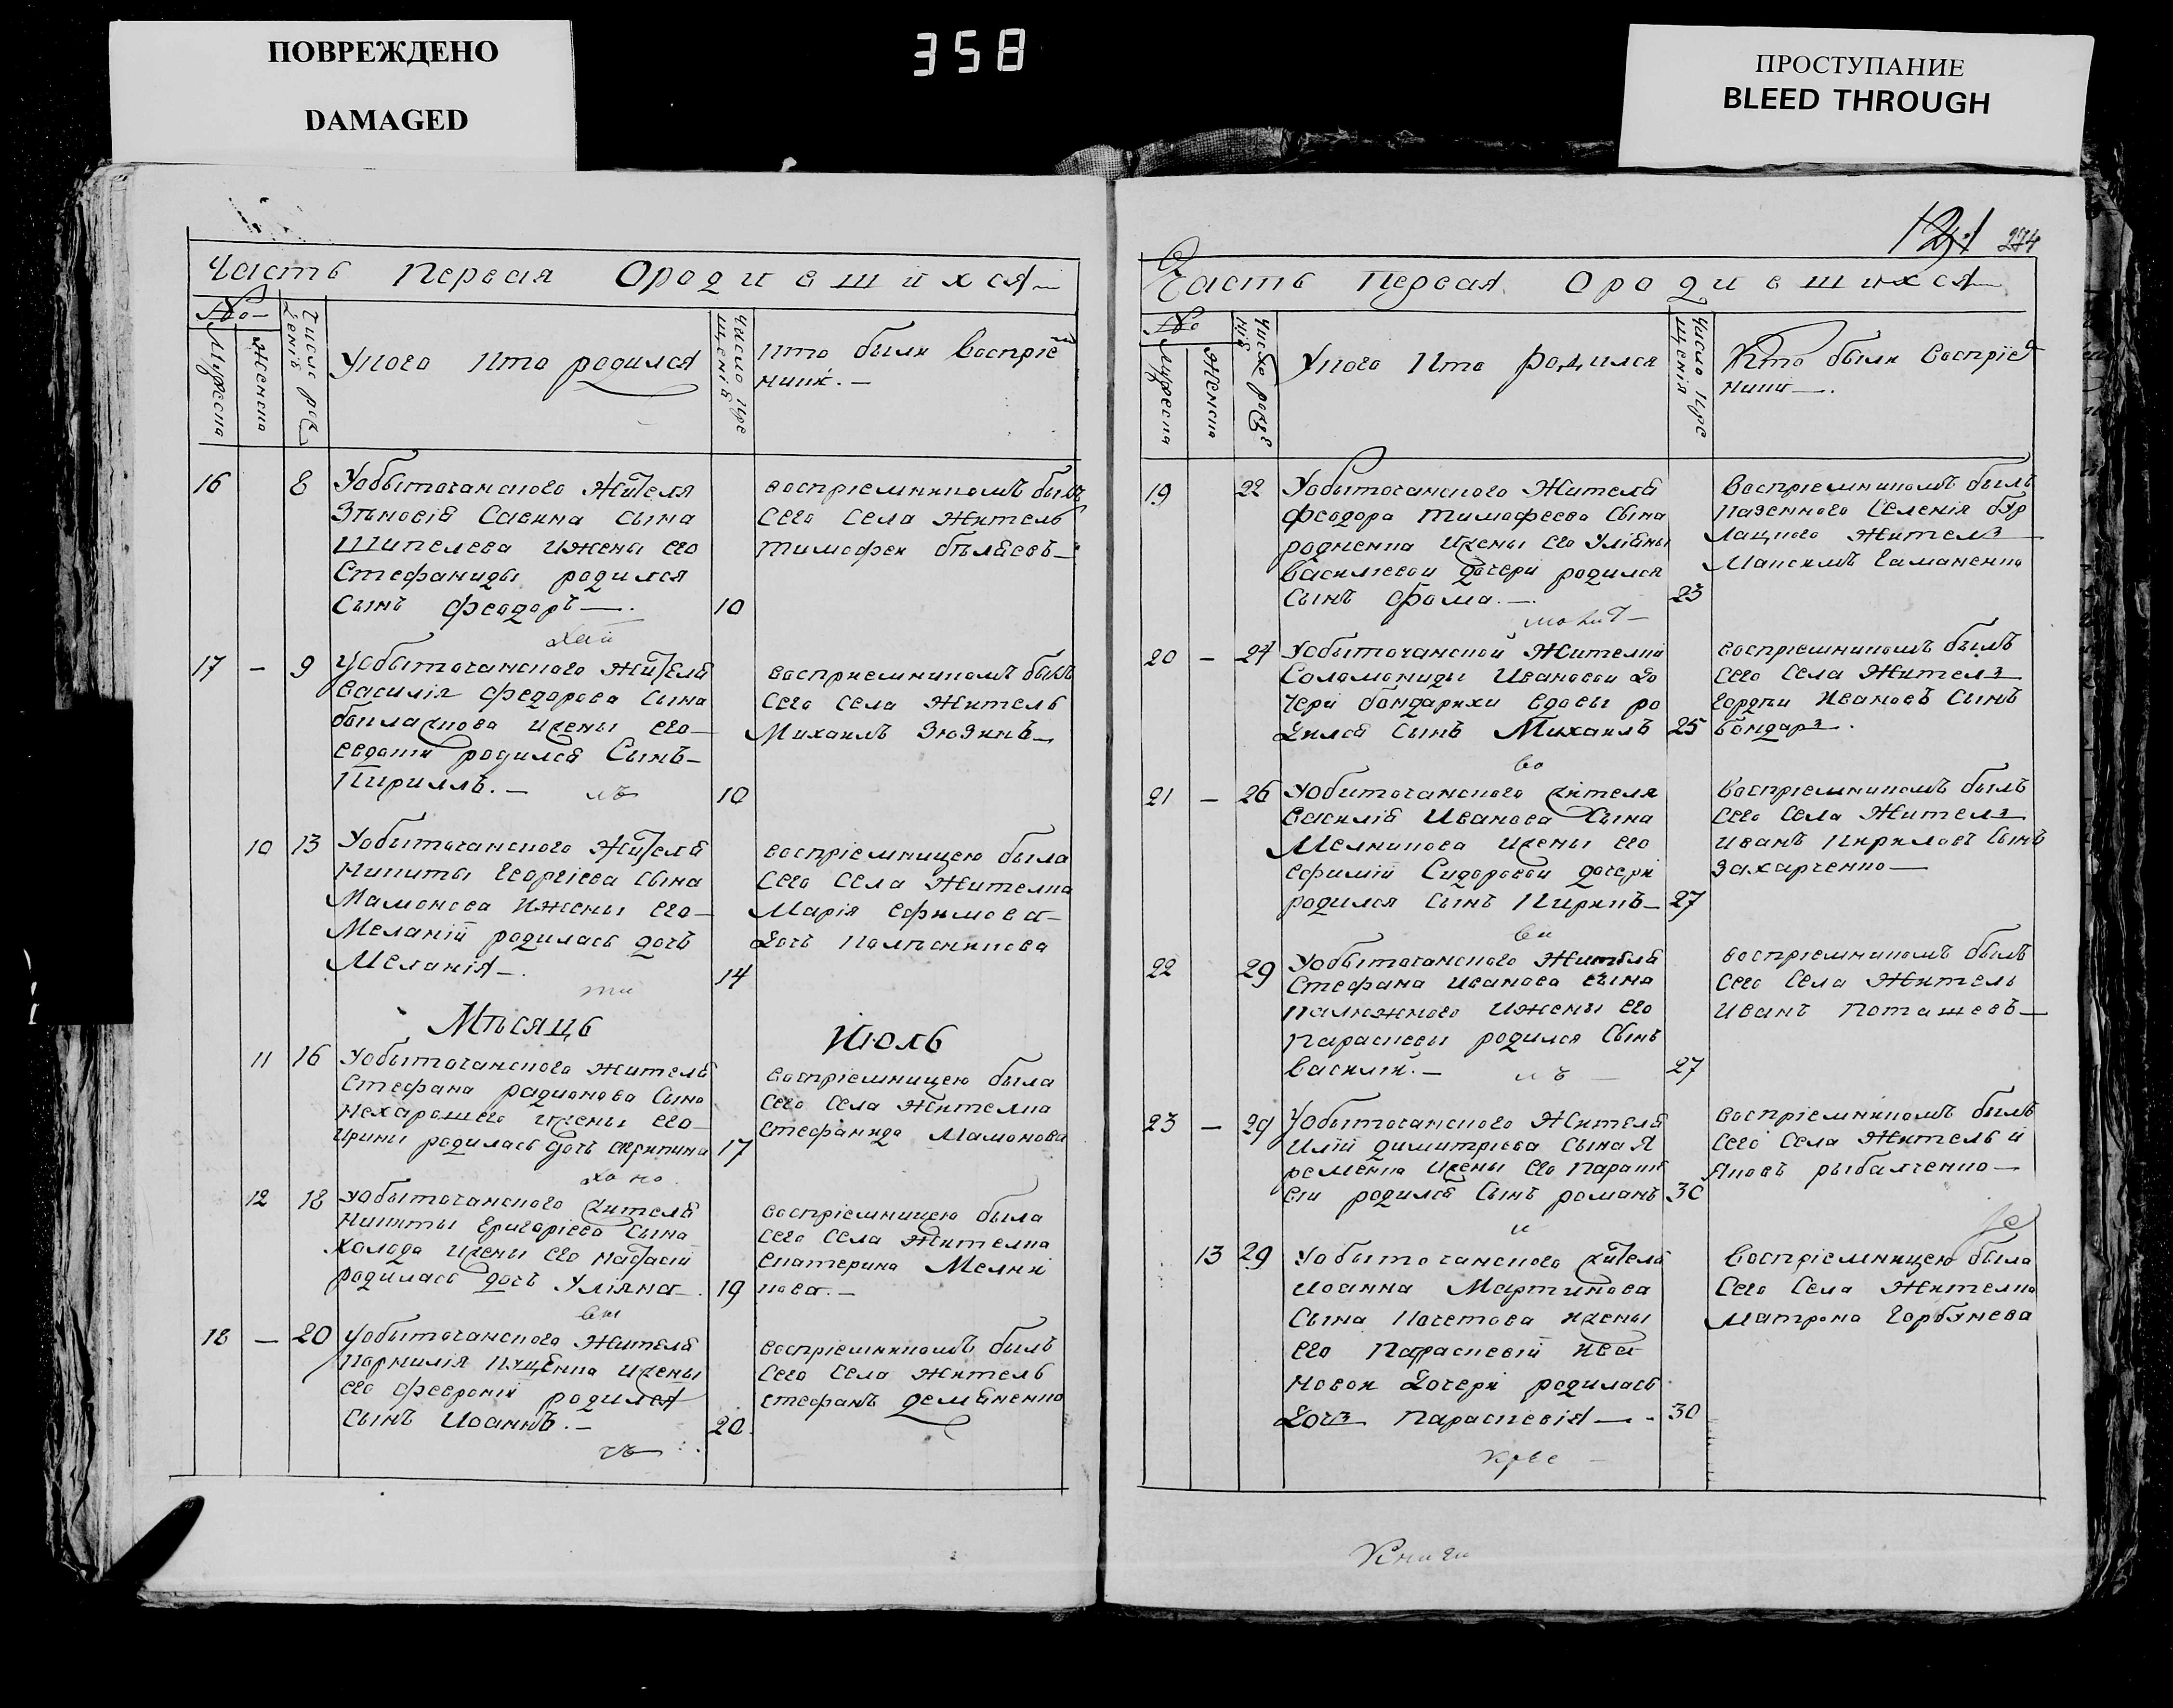 ПОВРЕЖДЕНО
DAMAGED
358
ПРОСТУПАНИЕ
BLEED THROUGH
Часть Первая О родившихся
№
Мужеска
Женска
Число рож
денія
У кого кто родился
Число кре
щенія
Кто были воспріе
мник.
16 8 У обыточанского жителя
Зѣновія Савина сына
Шипелева и жены его
Стефаниды родился
сынъ Феодоръ. 10
воспріемникомъ былъ
сего села житель
Тимофеи бѣляевъ
17 - 9 У обыточанского жителя
Василія Федорова сына
и жены его
Евдокіи родился сынъ
Кириллъ. 10
воспреемникомъ былъ
сего села житель
Михаилъ Зюзинъ
10 13 У обыточанского жителя
Никиты Георгіева сына
Мамонова и жены его
Меланіи родилась дочъ
Меланія. 14
воспріемницею была
сего села жителка
Марія Ефимова
дочъ
Мѣсяцъ Июль
11 16 У обыточанского жителя
Стефана радионова сына
нехарошего и жены его
Ирины родилась дочъ 17
воспріемницею была
сего села жителка
Стефанида Мамонова
12 18 У обыточанского жителя
Никиты Григоріева сына
холода и жены его настасіи
родилась дочъ Уліяна 19
воспріемницею была
сего села жителка
Екатерина Мелни
кова.
18 - 20 У обыточанского жителя
Корнилія и жены
его Февроніи родился
сынъ Иоаннъ. 20
воспріемникомъ былъ
сего села житель
Стефанъ демяненко
121 274
Часть Первая О родившихся
№
Мужеска
Женска
Число рожде
нія
У кого кто родился
Число кре
щенія
Кто были воспріе
мник.
19 22 У обыточанского жителя
Феодора Тимофеева сына
родненка и жены его Уліяны
Василіевои дочери родился
сынъ Фома. 23
воспріемникомъ былъ
казенного селенія
житель
Максимъ Гаманенко
20 - 24 У обыточанской жителки
Соломониды Ивановои до
чери бондарихи вдовы ро
дился сынъ Михаилъ 25
воспріемникомъ былъ
сего села житель
Гордѣи Ивановъ сынъ
бондарь.
21 - 26 У обиточанского жителя
Василія Иванова сына
Мелникова и жены его
Ефиміи Сидоровои дочери
родился сынъ Кирикъ 27
воспріемникомъ былъ
сего села житель
Иванъ Кириловъ сынъ
Захарченко
22 29 У обыточанского жителя
Стефана Иванова сына
Калюжного и жены его
Параскевы родился сынъ
Василіи. 27
воспріемникомъ былъ
сего села житель
Иванъ Поташевъ
23 - 29 У обыточанского жителя
Иліи димитріева сына Я
ременка и жены его Параск
еви родился сынъ романъ 30
воспріемникомъ былъ
сего села житель
Яковъ рыбалченко
13 29 У обыточанского жителя
Иоанна Мартинова
сына Кочетова и жены
его Параскевіи Ива
новои дочери родилась
дочь Параскевія 30
воспріемницею была
сего села жителка
Матрона Горбанева
Книги